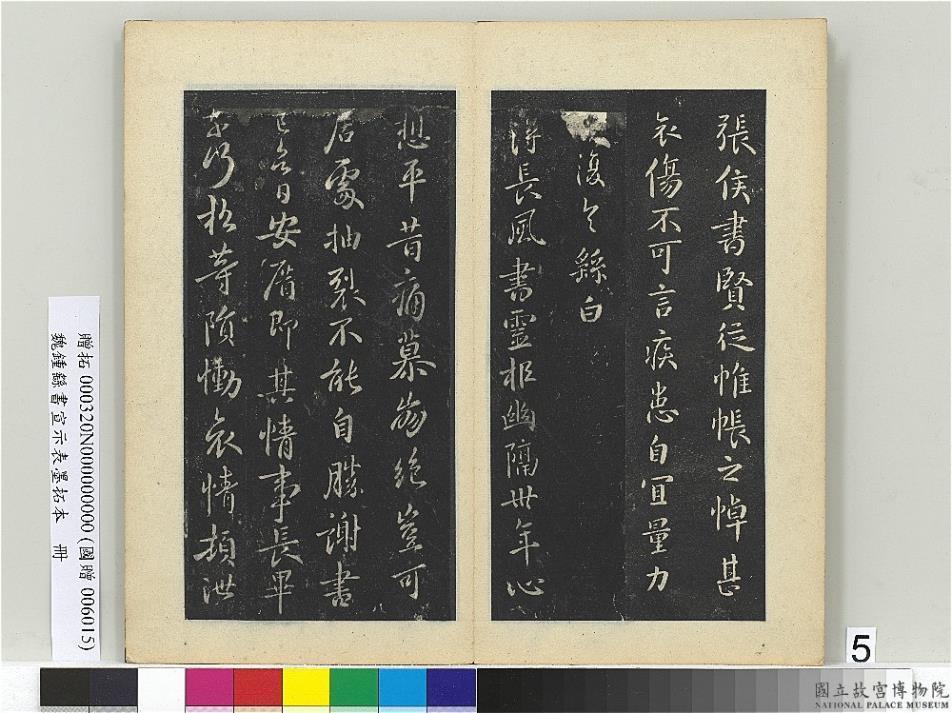 張侯書賢從帷帳之悼甚
哀傷不可言疾患自宜量力
復令繇白
得長風書靈柩幽隔卅年心
想平昔痛慕崩絕豈可
居處抽裂不能自勝謝書
已令日安厝即其情事長畢
不得 松等隕慟哀情頓泄
5
贈拓 000320N000000000 (國贈 006015)
魏鍾繇書宣示表墨拓本 冊
國立故宮博物院
NATIONAL PALACE MUSEUM